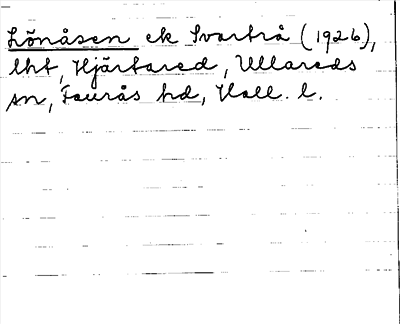 Lönåsen ek Svartrå (1926),
lht, Hjärtared, Ullareds
sn, Faurås hd, Hall. l.